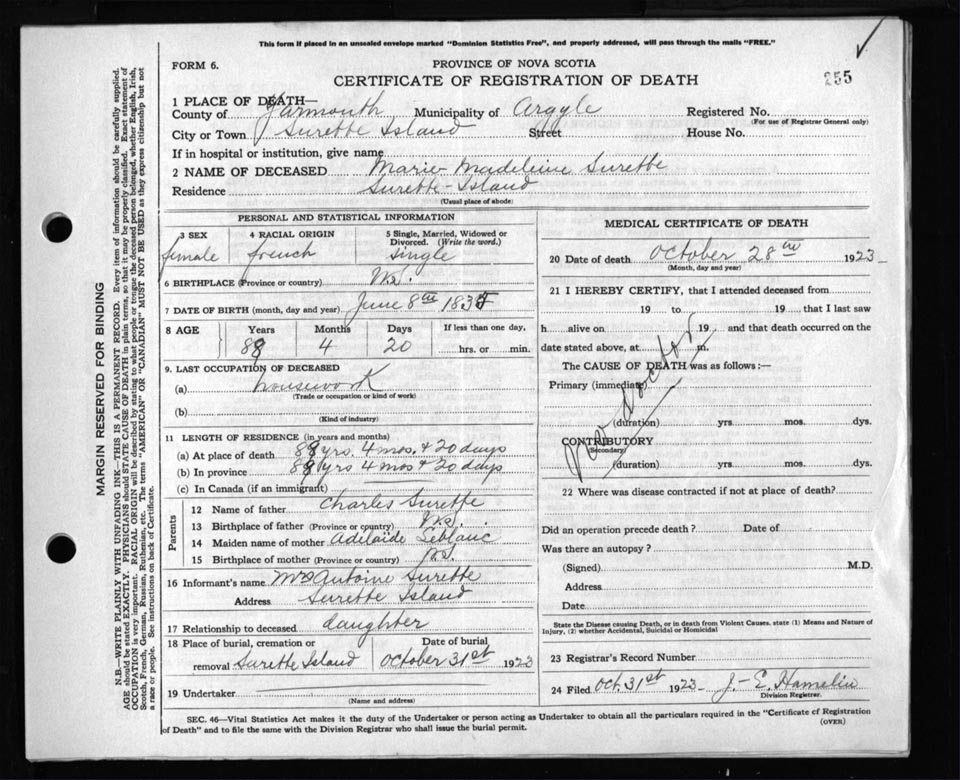 This form if placed in an unsealed envelope marked "Dominion Statistics Free", and properly addressed, will pass through the mails "FREE."
FORM 6.
PROVINCE OF NOVA SCOTIA
CERTIFICATE OF REGISTRATION OF DEATH
255
1 PLACE OF DEATH—
County of Yarmouth Municipality of Argyle Registered No.
(For use of Registrar General only)
City or Town Surette Island Street House No.
If in hospital or institution, give name
2 NAME OF DECEASED Marie Madeleine Surette
Residence Surette Island
(Usual place of abode)
PERSONAL AND STATISTICAL INFORMATION
3 SEX 4 RACIAL ORIGIN 5 Single, Married, Widowed or Divorced. (Write the word.)
female french single
6 BIRTHPLACE (Province or country) N.S.
7 DATE OF BIRTH (month, day and year) June 8th
8 AGE Years Months Days If less than one day,
4 20 hrs. or min.
9. LAST OCCUPATION OF DECEASED
(a) housework
(Trade or occupation or kind of work)
(b)
(Kind of industry)
11 LENGTH OF RESIDENCE (in years and months)
(a) At place of death yrs. 4 mos. + 20 days
(b) In province yrs 4 mos + 20 days
(c) In Canada (if an immigrant)
Parents
12 Name of father Charles Surette
13 Birthplace of father (Province or country) N.S.
14 Maiden name of mother Adilaide Leblanc
15 Birthplace of mother (Province or country) N.S.
16 Informant's name Mrs Antoine Surette
Address Surette Island
17 Relationship to deceased daughter
18 Place of burial, cremation or removal Surette Island
Date of burial October 31st 1923
19 Undertaker
(Name and address)
MEDICAL CERTIFICATE OF DEATH
20 Date of death October 28th 1923
(Month, day and year)
21 I HEREBY CERTIFY, that I attended deceased from
19 to 19 that I last saw
h alive on 19 and that death occurred on
date stated above, at m.
The CAUSE OF DEATH was as follows:—
Primary (immediate)
No doctor
(duration) yrs. mos. dys.
CONTRIBUTORY
(Secondary)
(duration) yrs. mos. dys.
22 Where was disease contracted if not at place of death?
Did an operation precede death? Date of
Was there an autopsy?
(Signed) M.D.
Address
Date
State the Disease causing Death, or in death from Violent Causes. state (1) Means and Nature of
Injury, (2) whether Accidental, Suicidal or Homicidal
23 Registrar's Record Number
24 Filed Oct. 31st 1923 J.-E. Hamelin
Division Registrar.
SEC. 46—Vital Statistics Act makes it the duty of the Undertaker or person acting as Undertaker to obtain all the particulars required in the "Certificate of Registration
of Death" and to file the same with the Division Registrar who shall issue the burial permit.
(OVER)
MARGIN RESERVED FOR BINDING
N.B.—WRITE PLAINLY WITH UNFADING INK—THIS IS A PERMANENT RECORD. Every item of information should be carefully supplied.
AGE should be stated EXACTLY. PHYSICIANS should STATE CAUSE OF DEATH in plain terms, so that it may be properly classified. Exact statement of
OCCUPATION is very important. RACIAL ORIGIN will be described by stating to what people or tongue the deceased person belonged, whether English, Irish,
Scotch, French, German, Russian, Ruthenian, etc. The terms "AMERICAN" or "CANADIAN" MUST NOT BE USED as they express citizenship but not
a race or people. See instructions on back of Certificate.